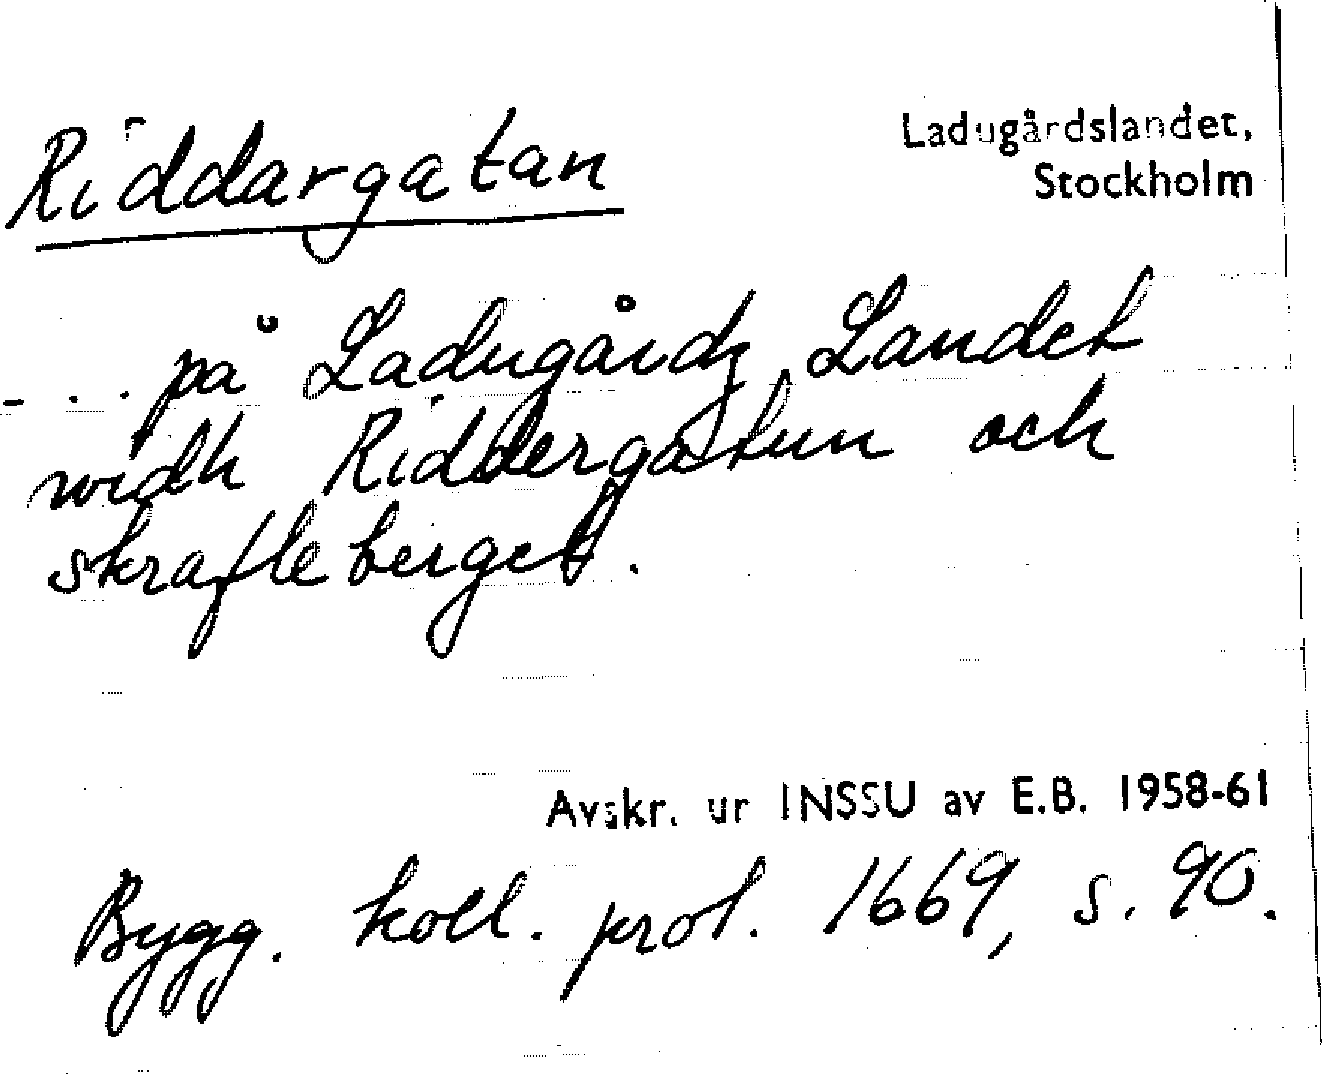 Riddargatan
Ladugårdslandet,
Stockholm
- . . på Ladugårdz Landet
widh Riddergatun och
skrafleberget.
Avskr. ur INSSU av E.B. 1958-61
Bygg. koll. prot. 1669, s. 90.